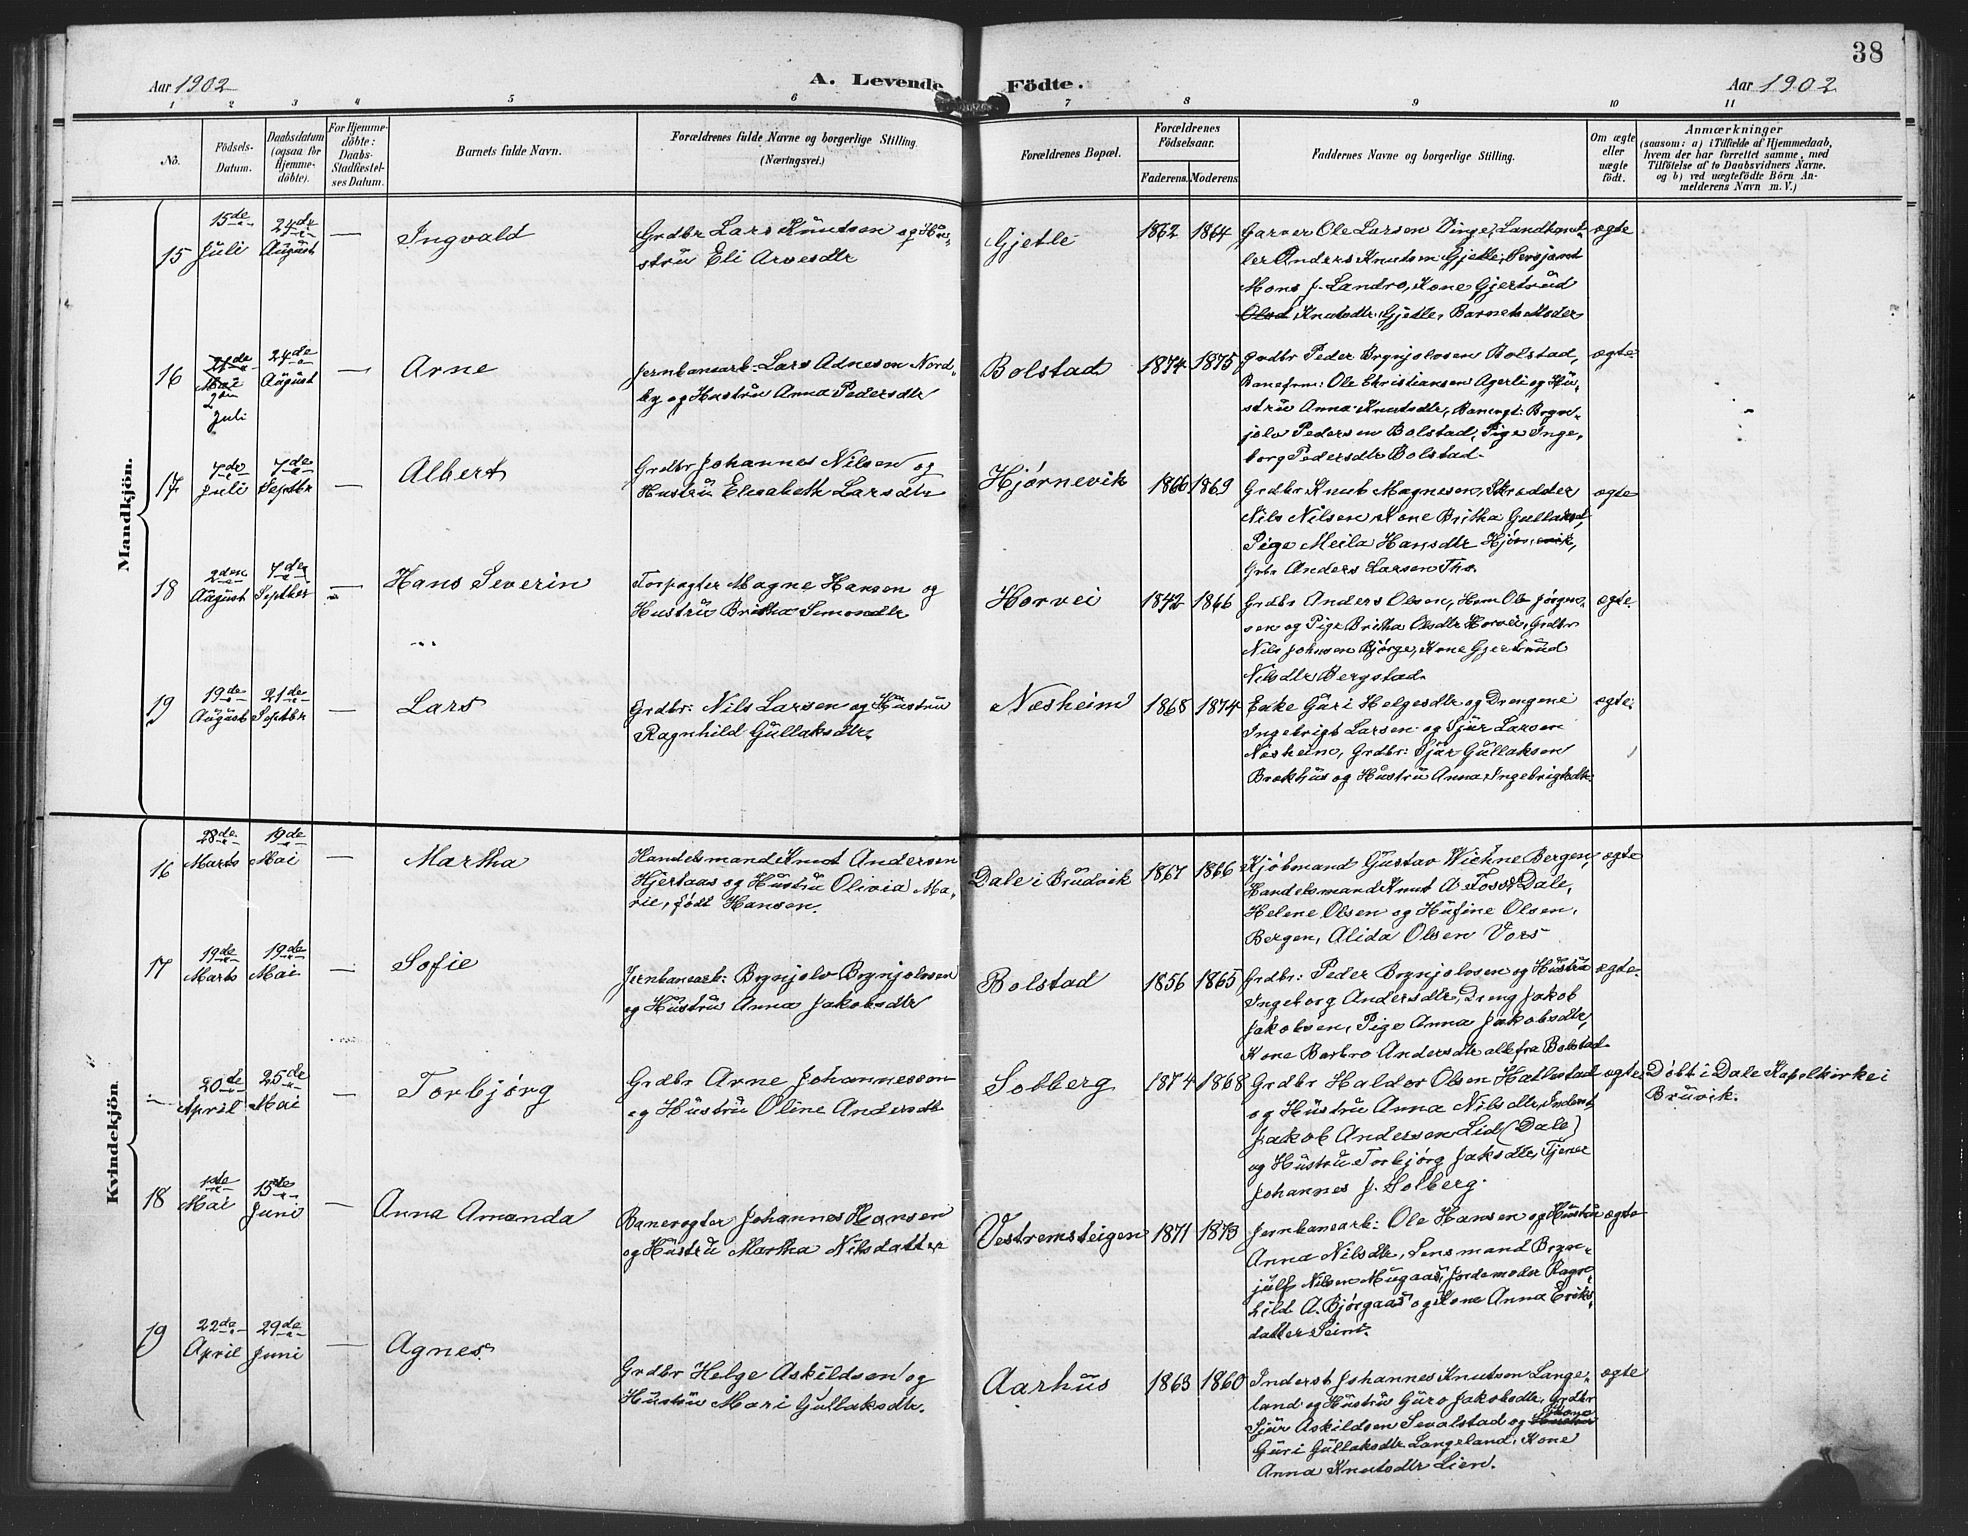 38
Aar 1902
A. Levende Födte.
Aar 1902
1 2 3 4 5 6 7 8 9 10 11
No.
Födsels-
Datum.
Daabsdatum
(ogsaa for
Hjemme-
döbte).
For Hjemme-
döbte:
Daabs-
Stadfæstel-
ses Datum.
Barnets fulde Navn.
Forældrenes fulde Navne og borgerlige Stilling.
(Næringsvei.)
Forældrenes Bopæl.
Forældrenes
Födselsaar.
Faderens. Moderens.
Faddernes Navne og borgerlige Stilling.
Om ægte
eller
uægte
födt.
Anmærkninger
(saasom: a) i Tilfælde af Hjemmedaab,
hvem der har forrettet samme, med
Tilföielse af to Daabsvidners Navne.
og b) ved uægtefödte Börn An-
melderens Navn m. V.)
Mandkjön.
15
15de
Juli
24de
August
—
Ingvald
Grdbr Lars Knutsen og Hu-
stru Eli Arnesdtr
Gjetle
1862 1864
Garver Ole Larsen Dinge, Landhand-
ler Anders Knutsen Gjetle, Sersjant
Mons J. Landro, Kone Gjertrud
Olsd Knutsdtr Gjetle, Barnets Moder
ægte
16
Mai
Juli
24de
August
—
Arne
Jernbanearb. Lars Adneson Nord-
by og Hustru Anna Pedersdtr
Bolstad
1874 1875
Grdbr Peder Brynjolvsen Bolstad,
Baneform: Ole Christiansen Agerli og Hu-
stru Anna Knutsdtr, Banevgt: Bryn-
jolv Pedersen Bolstad, Pige Inge-
borg Pedersdtr Bolstad.
ægte
17
7de
Juli
7de
Septbr
—
Albert
Grdbr Johannes Nilsen og
Hustru Elisabeth Larsdtr
Hjørnevik
1866 1869
Grdbr Knut Magnesen, Skrædder
Nils Nilsen Kone Britha Gullaksd,
Pige Meila Hansdtr Hjørnevik,
Grbr Anders Larsen Tho.
ægte
18
2den
August
7de
Septbr
—
Hans Severin
Forpagter Magne Hansen og
Hustru Britha Simondtr
Horvei
1842 1866
Grdbr Anders Olsen, Hem Ole Jørgen-
sen og Pige Britha Olsdtr Horvei, Grdbr
Nils Johnsen Bjørge, Kone Gjertrud
Nilsdtr Bergstad.
ægte
19
19de
August
21de
Septbr
—
Lars
Grdbr: Nils Larsen og Hustru
Ragnhild Gullaksdtr.
Næsheim
1868 1874
Enke Guri Helgesdtr og Drengene
Ingebrigt Larsen og Sjur Larsen
Næsheim, Grdbr: Sjur Gullaksen
Brækhus og Hustru Anna Ingebrigtsdtr
ægte.
Kvindekjön
16
28de
Marts
19de
Mai
—
Martha
Handelsmand Knut Andersen
Hjertaas og Hustru Olivia Ma-
rie, født Hansen.
Dale i Bruvik
1867 1866
Kjøbmand Gustav Wichne Bergen,
Handelsmand Knut A Foss Dale,
Helene Olsen og Hufine Olsen,
Bergen, Alida Olsen Vors
ægte
17
19de
Marts
19de
Mai
—
Sofie
Jernbanearb: Brynjolv Brynjolvsen
og Hustru Anna Jakobsdtr
Bolstad
1856 1865
Grdbr: Peder Brynjolvsen og Hustru
Ingeborg Andersdtr, Dreng Jakob
Jakobsen, Pige Anna Jakobsdtr,
Kone Barbro Andersdtr alle fra Bolstad.
ægte.
—
20de
April
25de
Mai
—
Torbjørg
Grdbr Arne Johannesson
og Hustru Oline Andersdtr
Solberg
1874 1868
Grdbr Haldor Olsen Hathestad
og Hustru Anna Nilsdtr, Inderst
Jakob Andersen Lid (Dale)
og Hustru Torbjørg Jaksdtr, Tjener
Johannes J. Solberg.
ægte
Döbt i Dale Kapelkirke i
Bruvik.
18
1ste
Mai
15de
Juni
—
Anna Amanda
Banevogter Johannes Hansen
og Hustru Martha Nilsdatter
Vestremsteigen
1871 1873
Jernbanearb: Ole Hansen og Hustru
Anna Nilsdtr, Lensmand Bryn-
julf Nilsen Mugaas, Jordemoder Ragn-
hild A. Bjørgaas og Kone Anna Eriks-
datter Seim.
ægte
19
22de
April
29de
Juni
—
Agnes.
Grdbr Helge Askildsen og
Hustru Mari Gullaksdtr.
Aarhus
1863 1860
Inderst Johannes Knutsen Lange-
land og Hustru Guro Jakobsdtr, Grdbr
Sjur Askildsen Sevalstad og Hustru Kone
Guri Gullaksdtr Langeland, Kone
Anna Knutsdtr Lien.
ægte